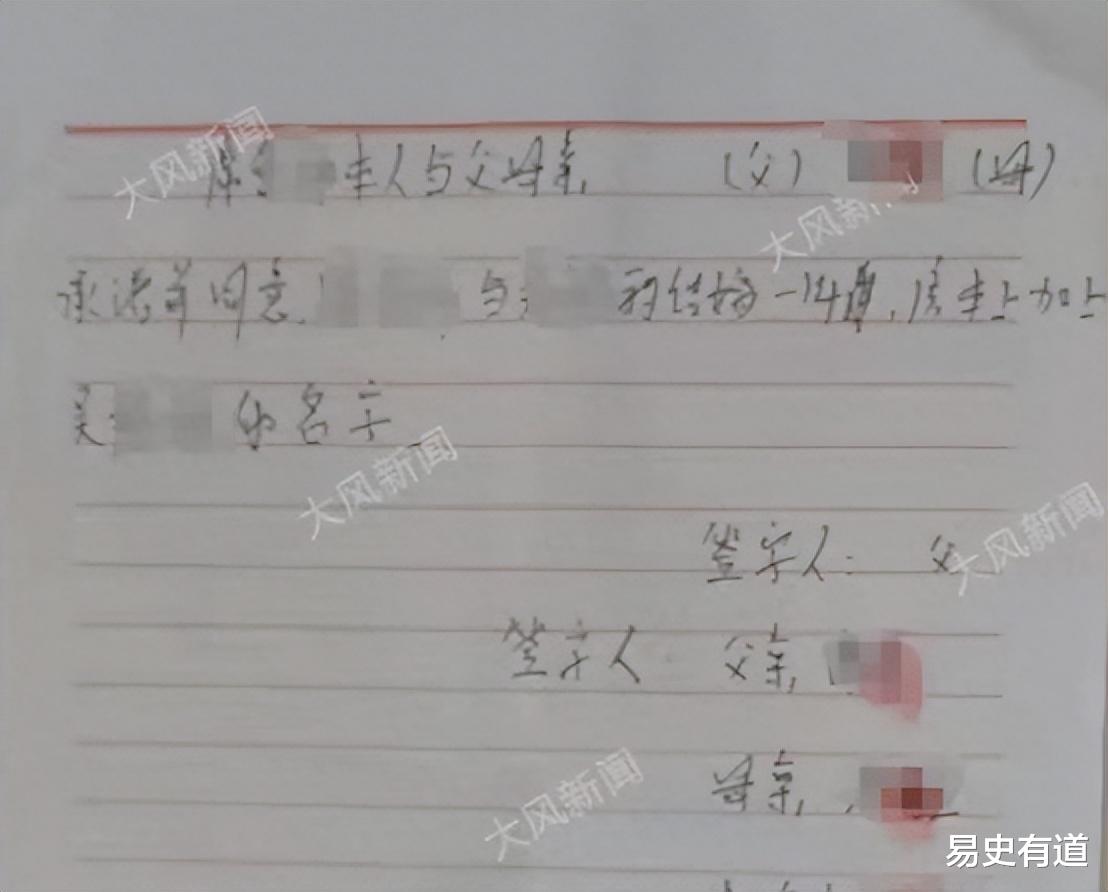 本人与父母亲 (父) (母)
承诺并同意 与 结婚一年 房本上加上
吴 的名字
签字人: 父
签字人 父亲
母亲
大风新闻
大风新
大风新闻
大风新闻
大风新闻
易史有道